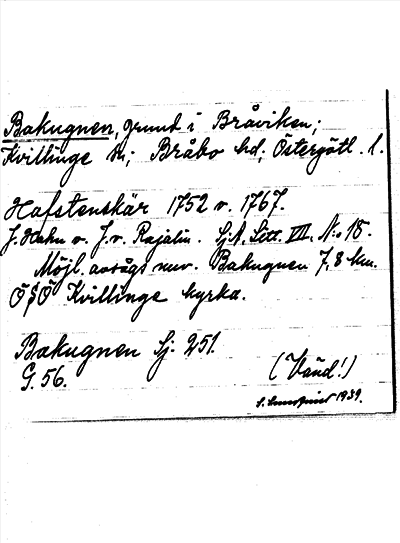 Bakugnen, grund i Bråviken;
Kvillinge sn; Bråbo hd; Östergötl. l.
Hafstenskär 1752 o. 1767.
J. Hahn o. J. v. Rajalin. Sj.A. Litt. VII, N:o 18.
Möjl. avsågs nuv. Bakugnen 7,8 km.
ÖSÖ Kvillinge kyrka.
Bakugnen Sj. 251.
G. 56.
(Vänd!)
1939.